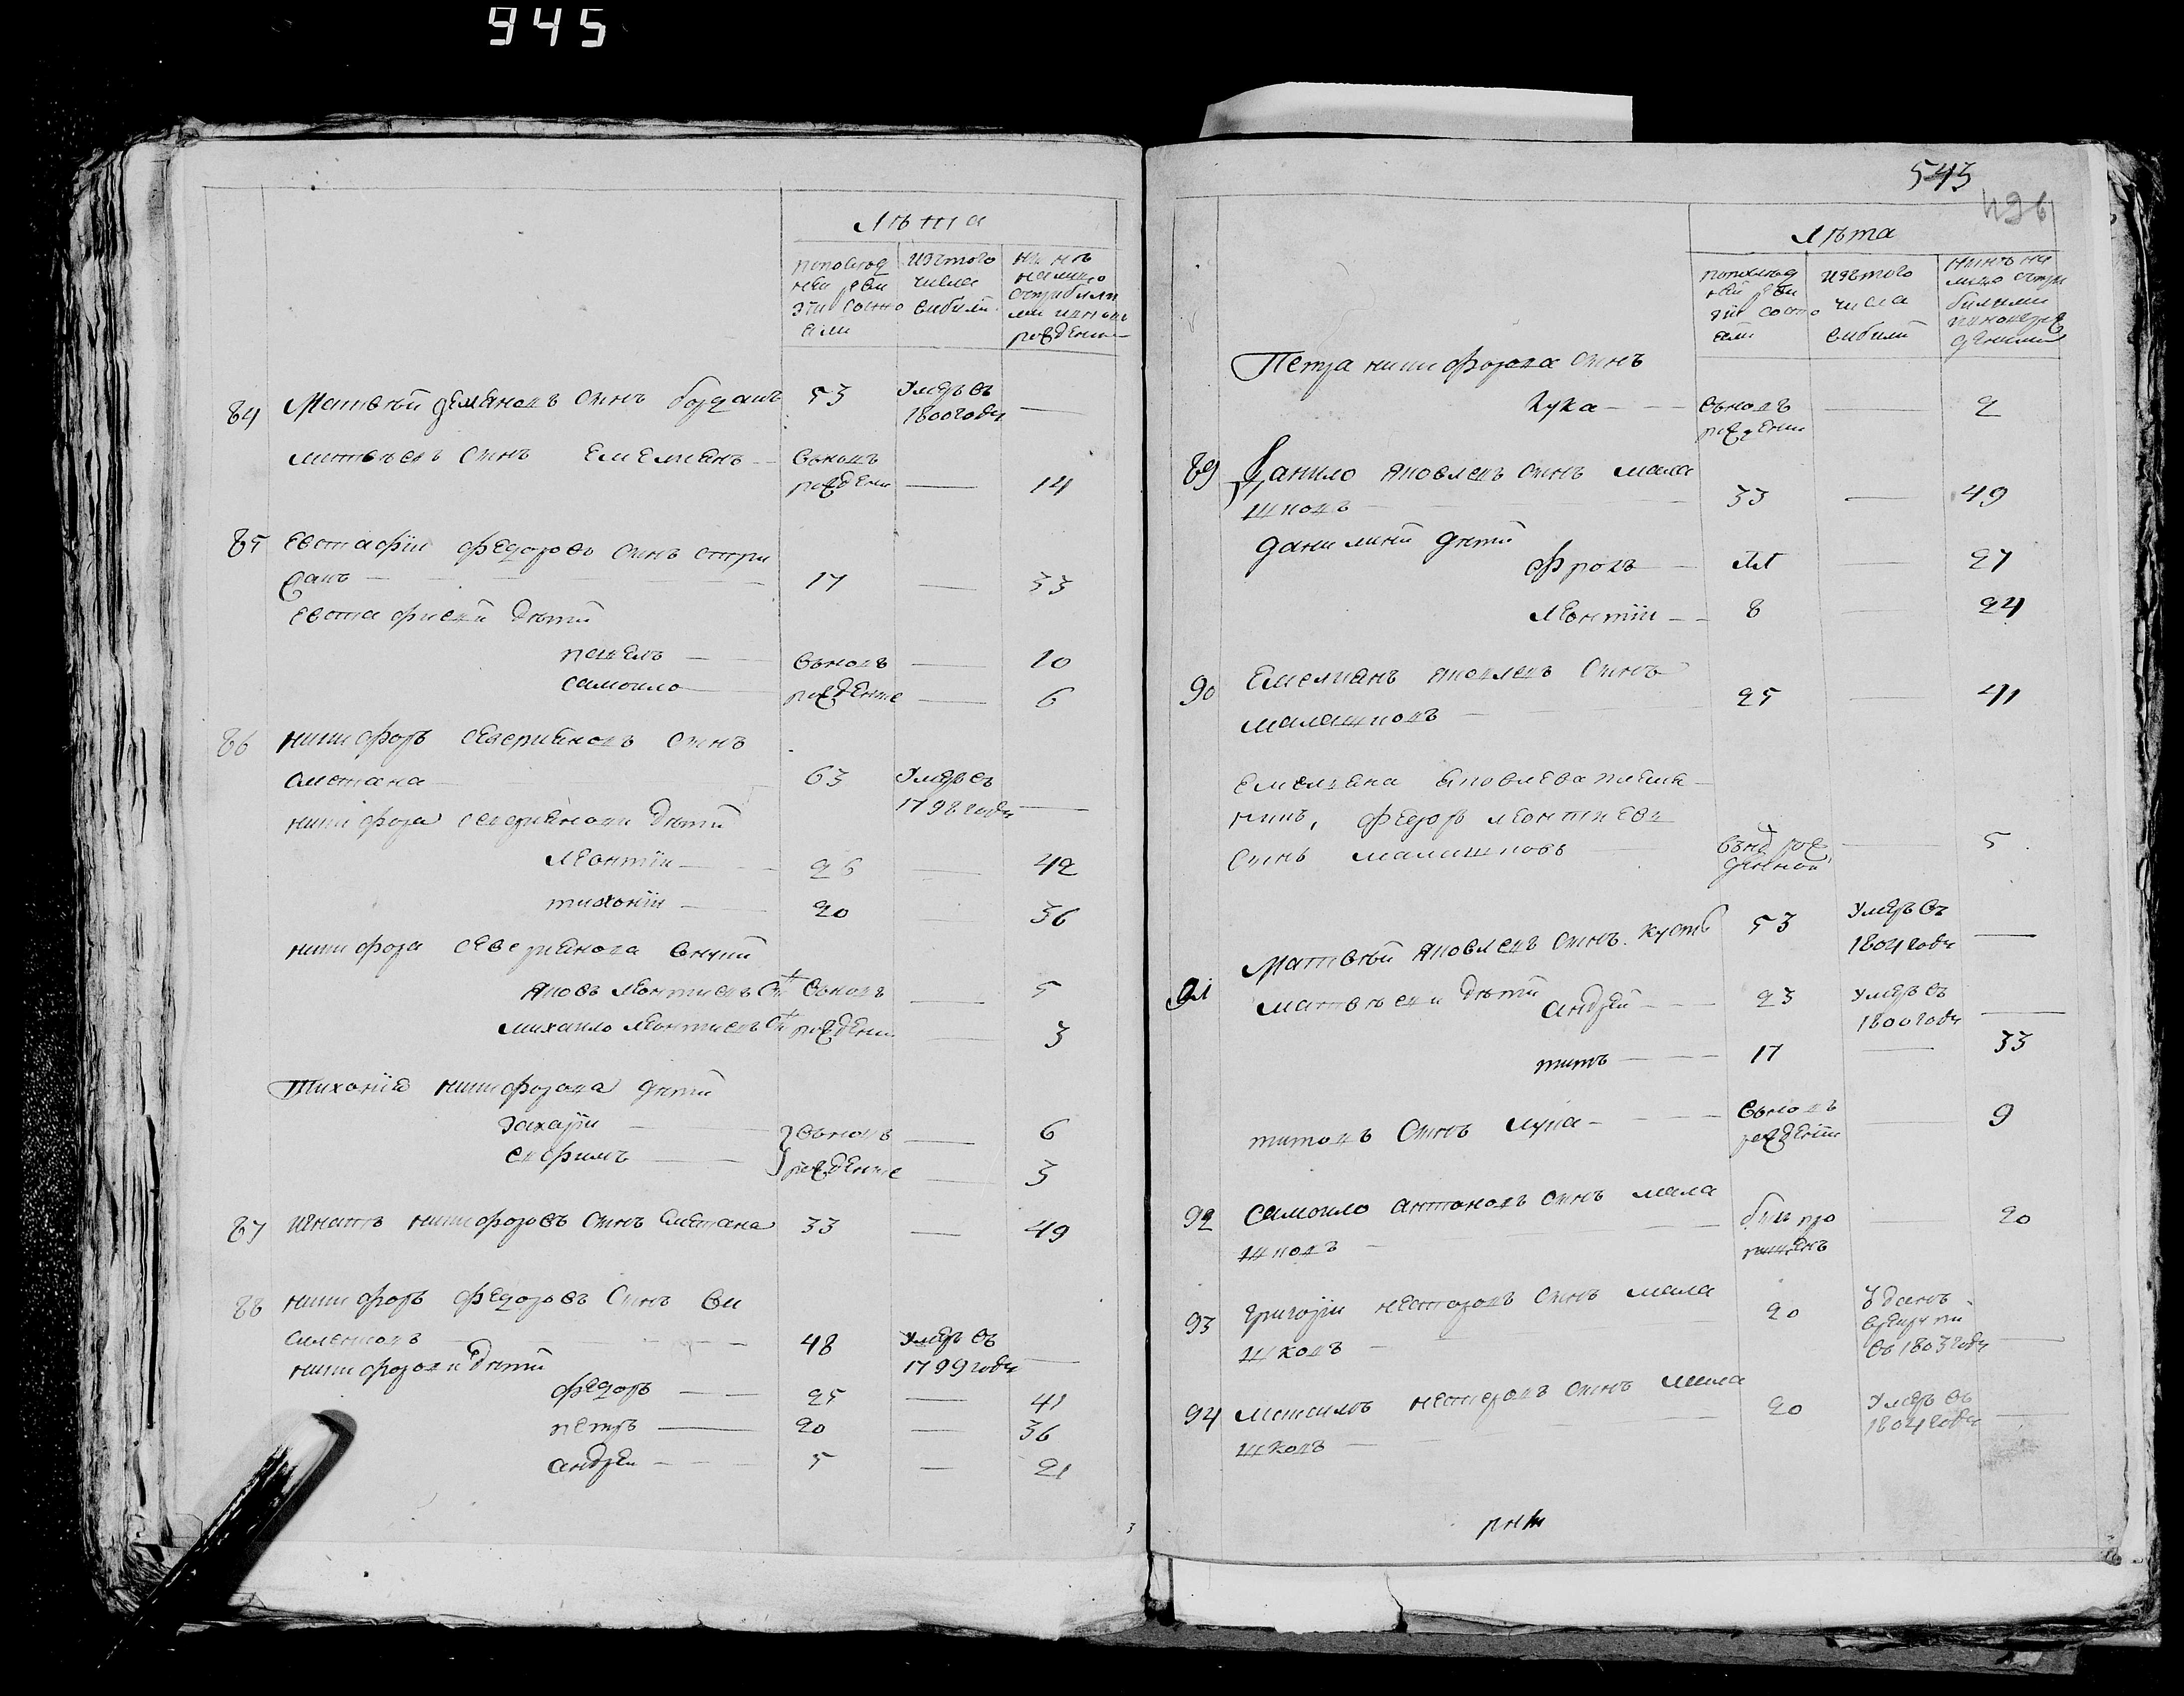 945
Лѣта
по послѣд
ней реви
зіи состо
яли
изъ того
числа
выбили
нынѣ
на лицо
с прибили
ми и вновь
рожденн
84 Матвѣй демяновъ сынъ богданъ 53 умеръ въ
1800 году —
матвѣевъ сынъ емелианъ — вновь
рожденъ — 14
85 евстафіи федоровъ сынъ стри
жакъ — 17 — 33
евстафиевы дѣти
павелъ — вновь — 10
самоило рожденние — 6
86 никифоръ севериановъ сынъ
сметана 63 умеръ въ
1798 году —
никифора севериянова дѣти
леонтіи — 26 — 42
тихоніи — 20 — 36
никифора северианова внуки
яковъ леонтиевъ сы вновь — 5
михаило леонтиевъ сы рожденн — 3
Тихонія никифорова дѣти
захаріи — вновь — 6
ефимъ — рожденние — 3
87 игнатъ никифоровъ сынъ сметана 33 — 49
88 никифоръ федоровъ сынъ ви
силенковъ 48 умеръ въ
1799 году —
никифоровы дѣти
федоръ — 25 — 41
петръ — 20 — 36
андреи — 5 — 21
543
496
Лѣта
по послѣд
ней реви
зіи состо
яли
изъ того
числа
выбили
нинѣ на
лицо с при
билими
и новорож
деними
Петра никифорова синъ
лука — вновь — 2
рожденн
89 Данило яковлевъ синъ мала
шковъ — 33 — 49
данилини дѣти
фролъ — 11 — 27
леонтіи — 8 — 24
90 Емелиянъ яковлевъ синъ
малашковъ — 25 — 41
емелияна яковлева племя
никъ, федоръ леонтиевъ
синъ малашковъ вънов рож
денной — 5
91 Матвѣй яковлевъ синъ кустъ 53 умеръ въ
1804 году —
матвѣеви дѣти андрей — 23 умеръ въ
1800 году —
титъ — 17 — 33
титовъ синъ лука — вновь
рожденни — 9
92 самоило антоновъ синъ мала
шковъ — билъ про
пищенъ — 20
93 григоріи нестеровъ синъ мала
шковъ — 20 Зданъ
врекрути
въ 1803 году —
94 нестеровъ синъ мала
шковъ — 20 умеръ въ
1804 году —